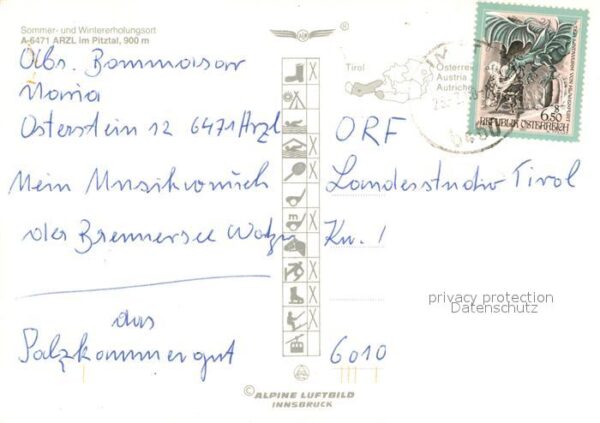 Sommer- und Wintererholungsort
A-6471 ARZL im Pitztal, 900 m
Abs. Bommasar
Maria
Osterstein 12 6471 Arzl
Mein Musikwunsch
der Brennersee
das
Salzkammergut
Tirol
Österreich
Austria
Autriche
6460
6.50
S
REPUBLIK ÖSTERREICH
ORF
Landesstudio Tirol
Kw. 1
privacy protection
Datenschutz
6010
© ALPINE LUFTBILD
INNSBRUCK